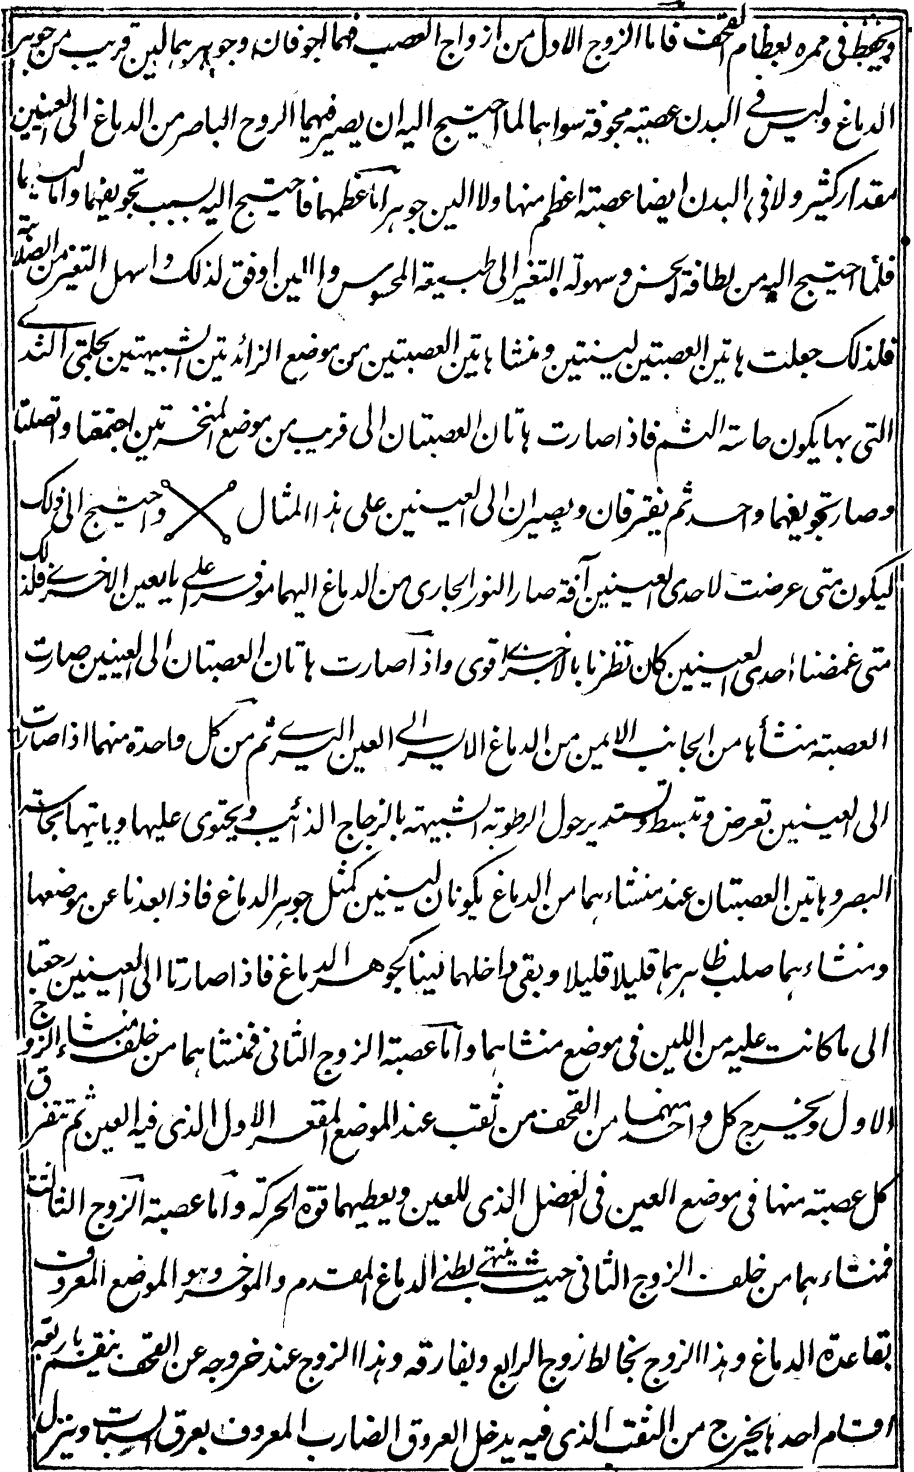 ويحفظ في ممره بعظام القحف فاما الزوج الاول من ازواج العصب فهما اجوفان وجوهرهما لين قريب من جوهر
الدماغ وليس في البدن عصبة مجوفة سواهما لما احتيج اليه ان يصير فيهما الروح الباصر من الدماغ الى العينين
مقدار كثير ولا في البدن ايضا عصبة اعظم منها ولا الين جوهرا اما عظمهما فاحتيج اليه بسبب تجويفهما واما لينهما
فلما احتيج اليه من لطافة الحس وسهولة التغير الى طبيعة المحسوس والين اوفق لذلك واسهل التغير من الصلابة
فلذلك جعلت هاتين العصبتين لينتين ومنشا هاتين العصبتين من موضع الزائدتين الشبيهتين بحلمتي الثدي
التي بها يكون حاسة الشم فاذا صارت هاتان العصبتان الى قريب من موضع المنخرين اجتمعتا واتصلتا
وصار تجويفهما واحد ثم يفترقان ويصيران الى العينين على هذا المثال واحتيج الى ذلك
ليكون متى عرضت لاحدى العينين آفة صار النور الجاري من الدماغ اليهما موفرا على العين الاخرى فلذلك
متى غمضنا احدى العينين كان نظرنا بالاخرى اقوى واذا صارت هاتان العصبتان الى العينين صارت
العصبة منشأها من الجانب الايمن من الدماغ الايسر الى العين اليسرى ثم من كل واحدة منهما اذا صارت
الى العينين تعرض وتبسط وتستدير حول الرطوبة الشبيهة بالزجاج الذائب ويحتوى عليها وياتيها بحاسة
البصر وهاتين العصبتان عند منشاءهما من الدماغ يكونان لينين كمثل جوهر الدماغ فاذا ابعدنا عن موضعها
ومنشاءهما صلب ظاهرهما قليلا قليلا وبقى داخلهما لينا كجوهر الدماغ فاذا صارتا الى العينين رجعتا
الى ما كانت عليه من اللين في موضع منشاهما واما عصبة الزوج الثاني فمنشاهما من خلف منشاء الزوج
الاول ويخرج كل واحد منهما من القحف من ثقب عند الموضع المقعر الاول الذي فيه العين ثم تتفرق
كل عصبة منها في موضع العين في العضل الذي للعين ويعطيهما قوة الحركة واما عصبة الزوج الثالث
فمنشاءهما من خلف الزوج الثاني حيث ينتهي بطني الدماغ المقدم والموخر وهو الموضع المعروف
بقاعدة الدماغ وهذا الزوج يخالط زوج الرابع ويفارقه وهذا الزوج عند خروجه عن القحف ينقسم باربعة
اقسام احدها يخرج من الثقب الذي فيه يدخل العروق الضارب المعروف بعرق السبات وينزل